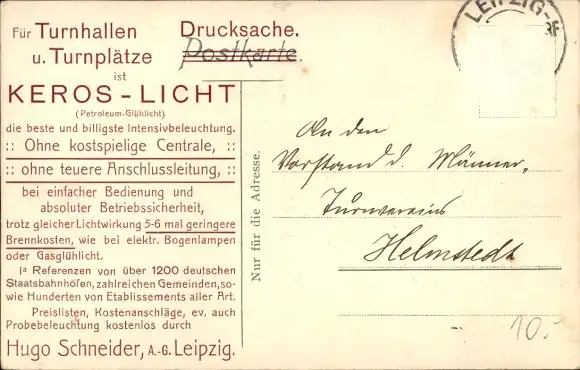 Für Turnhallen
u. Turnplätze
ist
KEROS-LICHT
(Petroleum-Glühlicht)
die beste und billigste Intensivbeleuchtung.
:: Ohne kostspielige Centrale, ::
:: ohne teuere Anschlussleitung, ::
bei einfacher Bedienung und
absoluter Betriebssicherheit,
trotz gleicher Lichtwirkung 5-6 mal geringere
Brennkosten, wie bei elektr. Bogenlampen
oder Gasglühlicht.
Iª Referenzen von über 1200 deutschen
Staatsbahnhöfen, zahlreichen Gemeinden, so-
wie Hunderten von Etablissements aller Art.
Preislisten, Kostenanschläge, ev. auch
Probebeleuchtung kostenlos durch
Hugo Schneider, A.-G. Leipzig.
Drucksache.
Postkarte.
LEIPZIG-
Nur für die Adresse.
An den
Vorstand d. Männer-
Turnvereins
Helmstedt
10.-